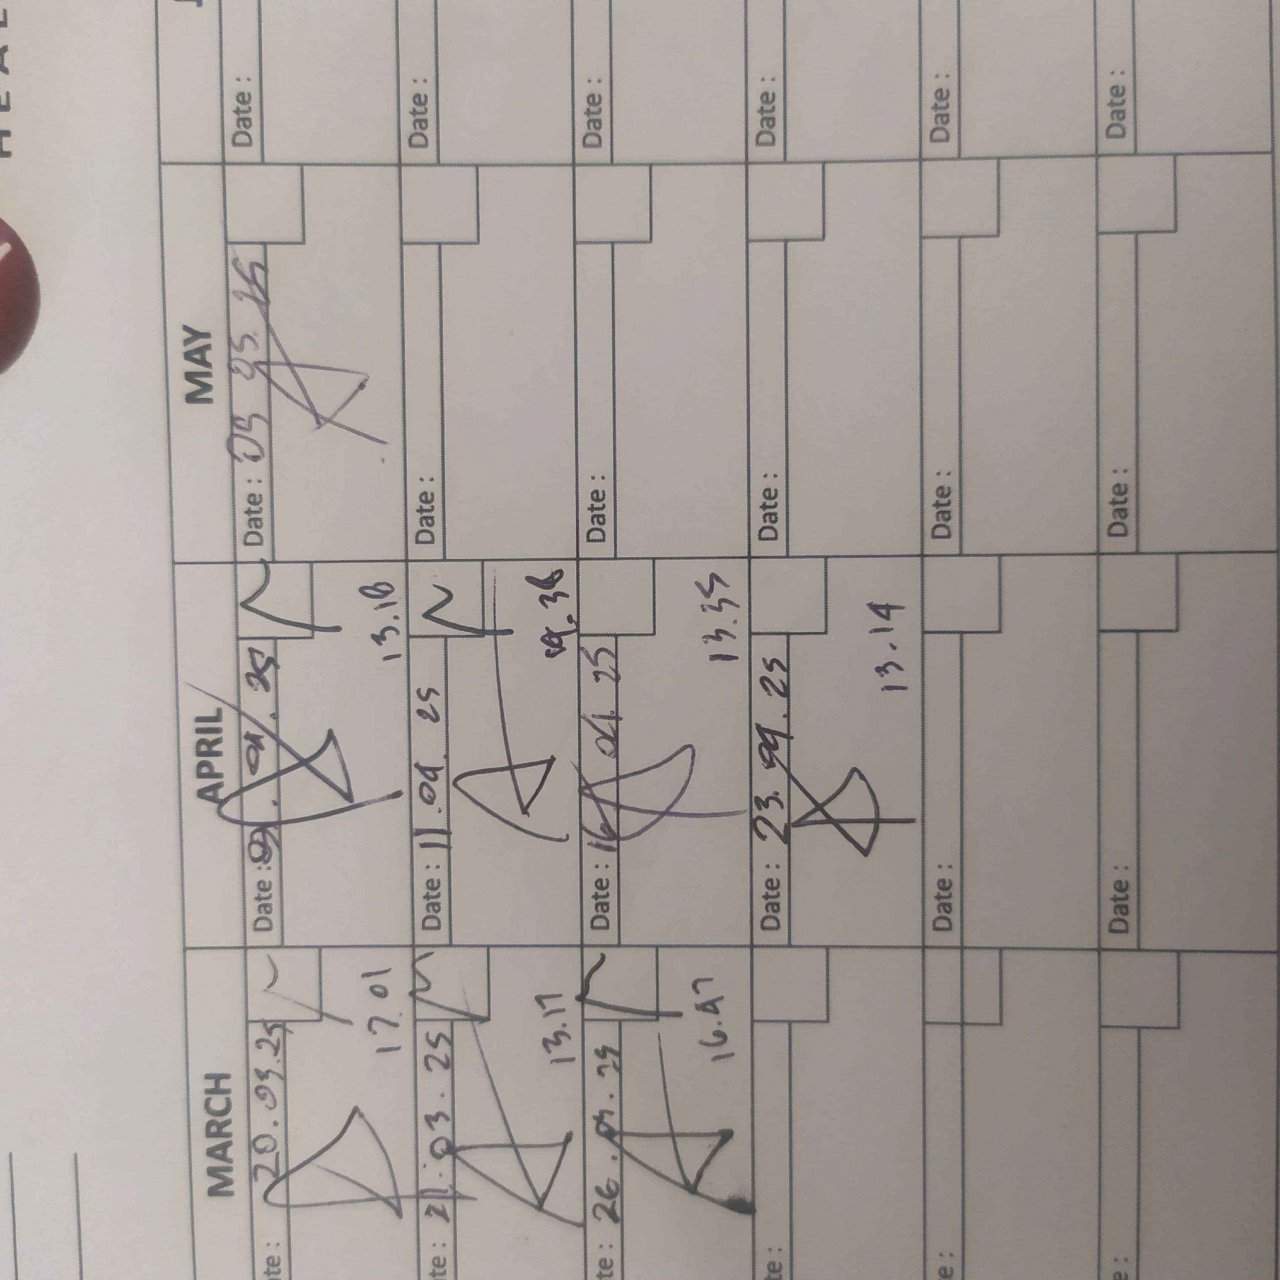 MARCH APRIL MAY
20.03.25 Date : 09.04.25 Date : 05 05 25 Date :
17.01 13.18
21.03.25 Date : 11.04.25 Date : Date :
13.17
26.03.25 Date : 16 04 25 Date : Date :
16.47 13.35
Date : 23.04.25 Date : Date :
13.14
Date : Date : Date :
Date : Date : Date :